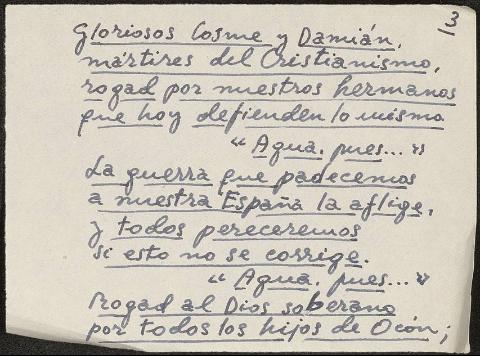 3
Gloriosos Cosme y Damián,
mártires del Cristianismo,
rogad por nuestros hermanos
que hoy defienden lo mismo
"Agua, pues..."
La guerra que padecemos
a nuestra España la aflige,
y todos pereceremos
si esto no se corrige.
"Agua, pues..."
Rogad al Dios soberano
por todos los hijos de Ocón;